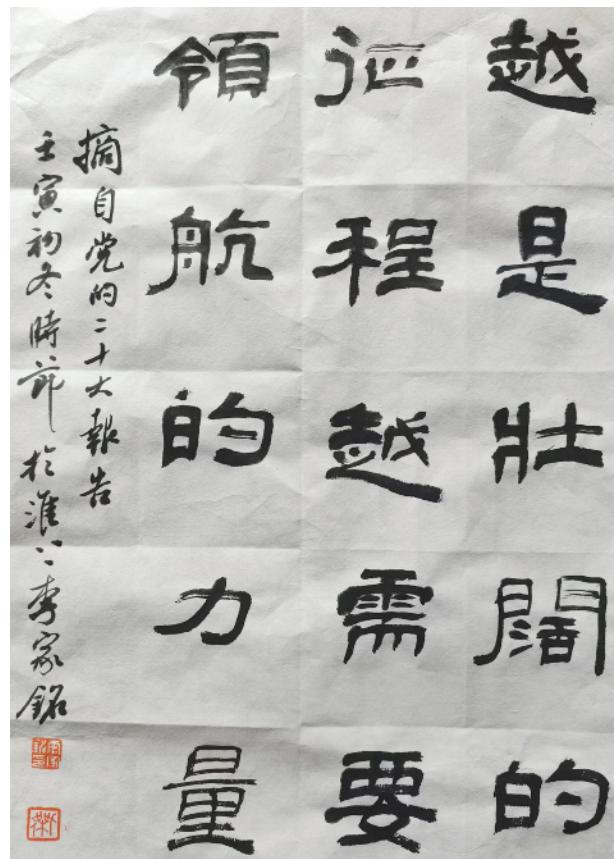 越是壮闊的
征程越需要
領航的力量
摘自党的二十大報告
壬寅初冬時節於淮上李家銘